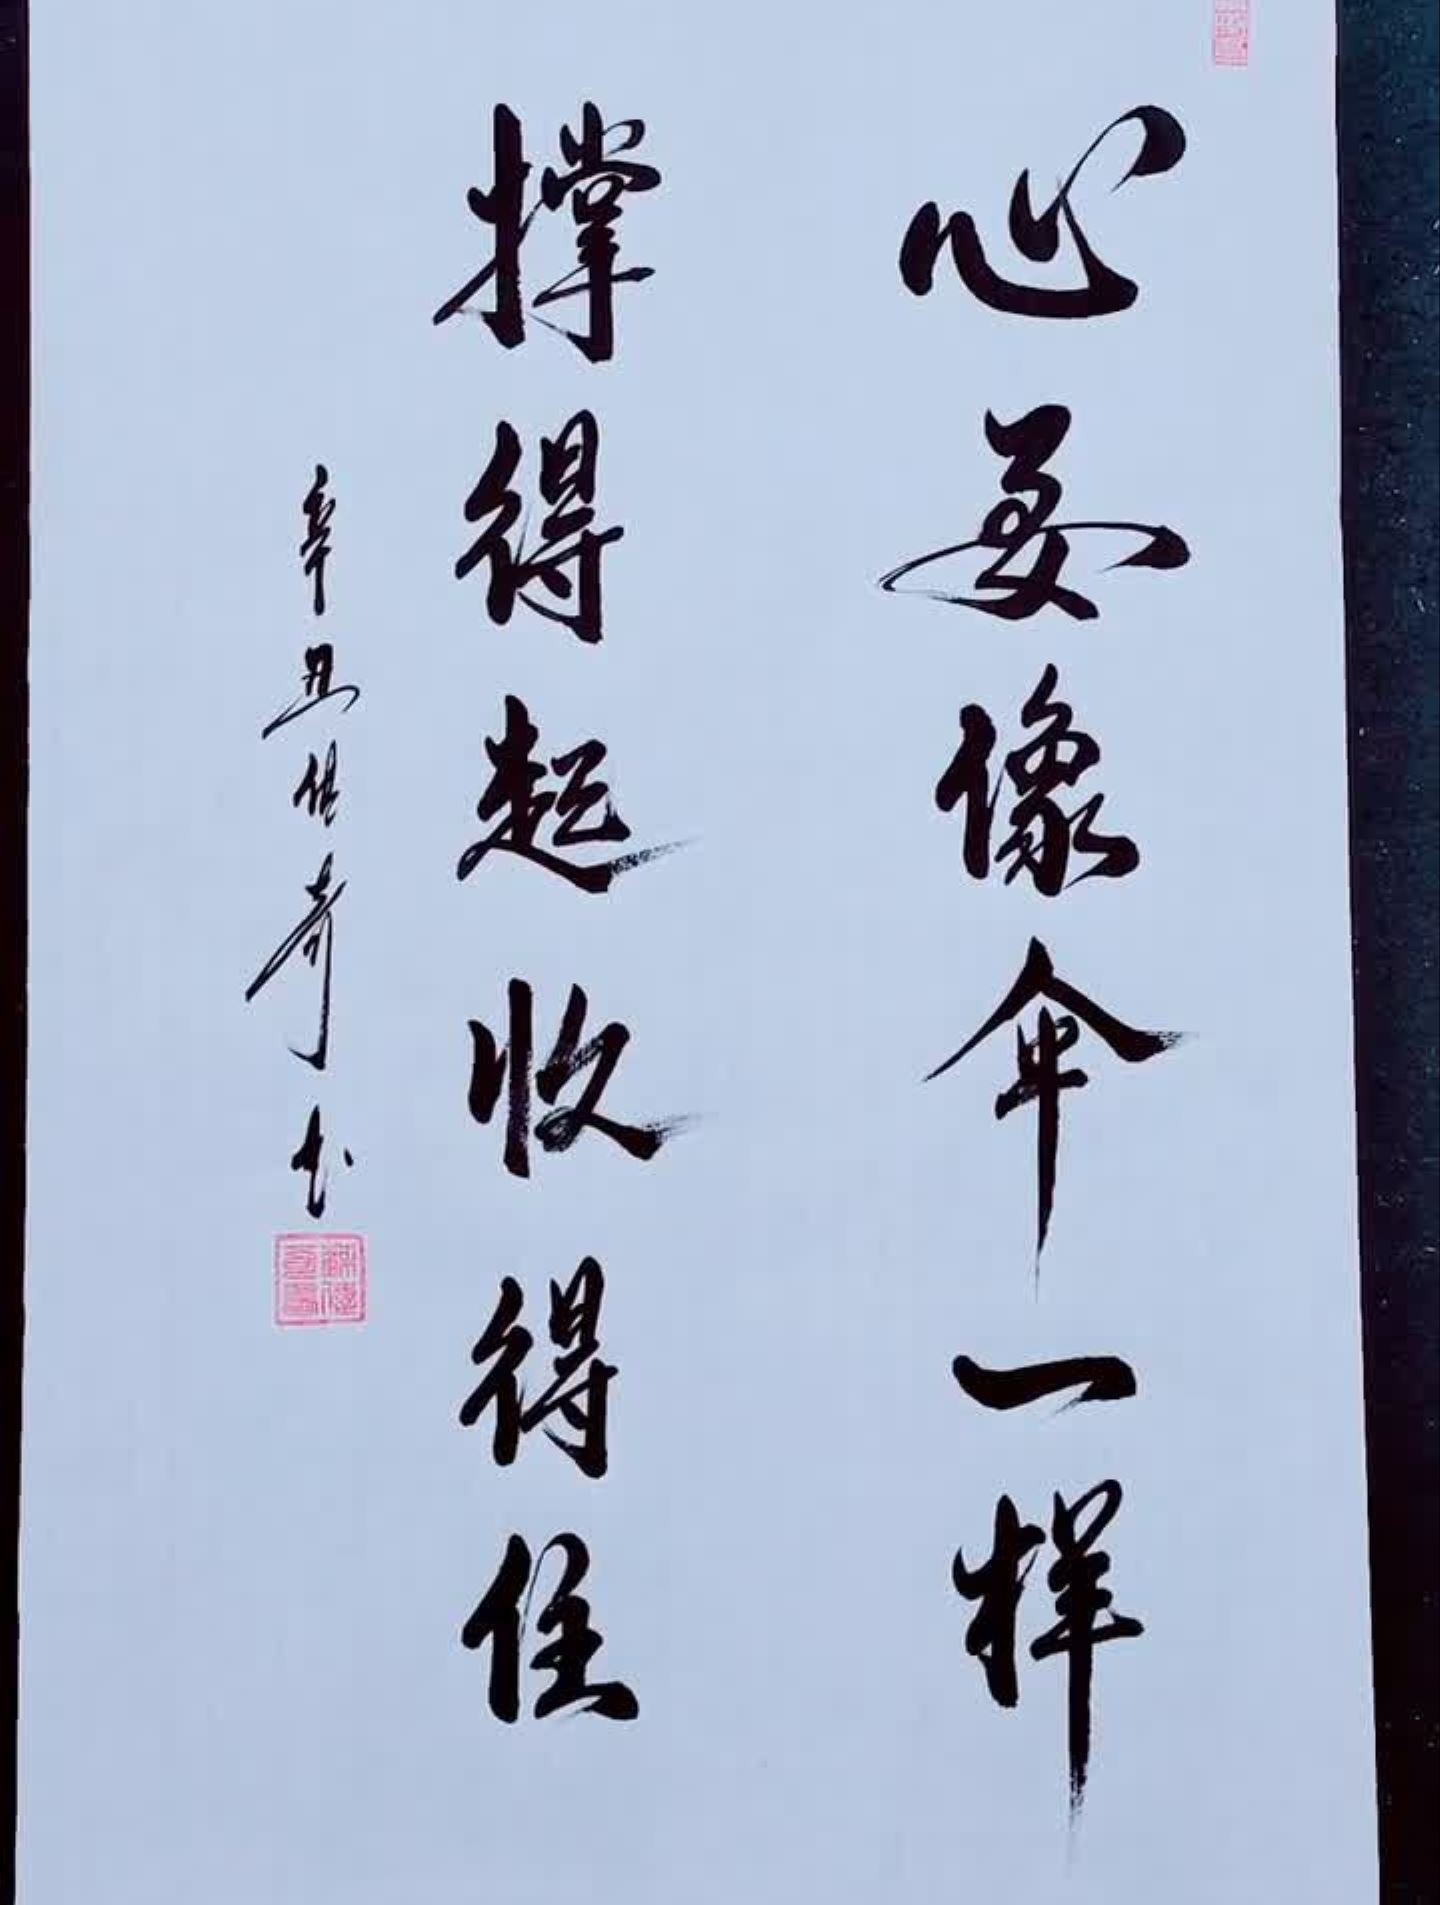 心要像伞一样
撑得起收得住
辛丑 奇书